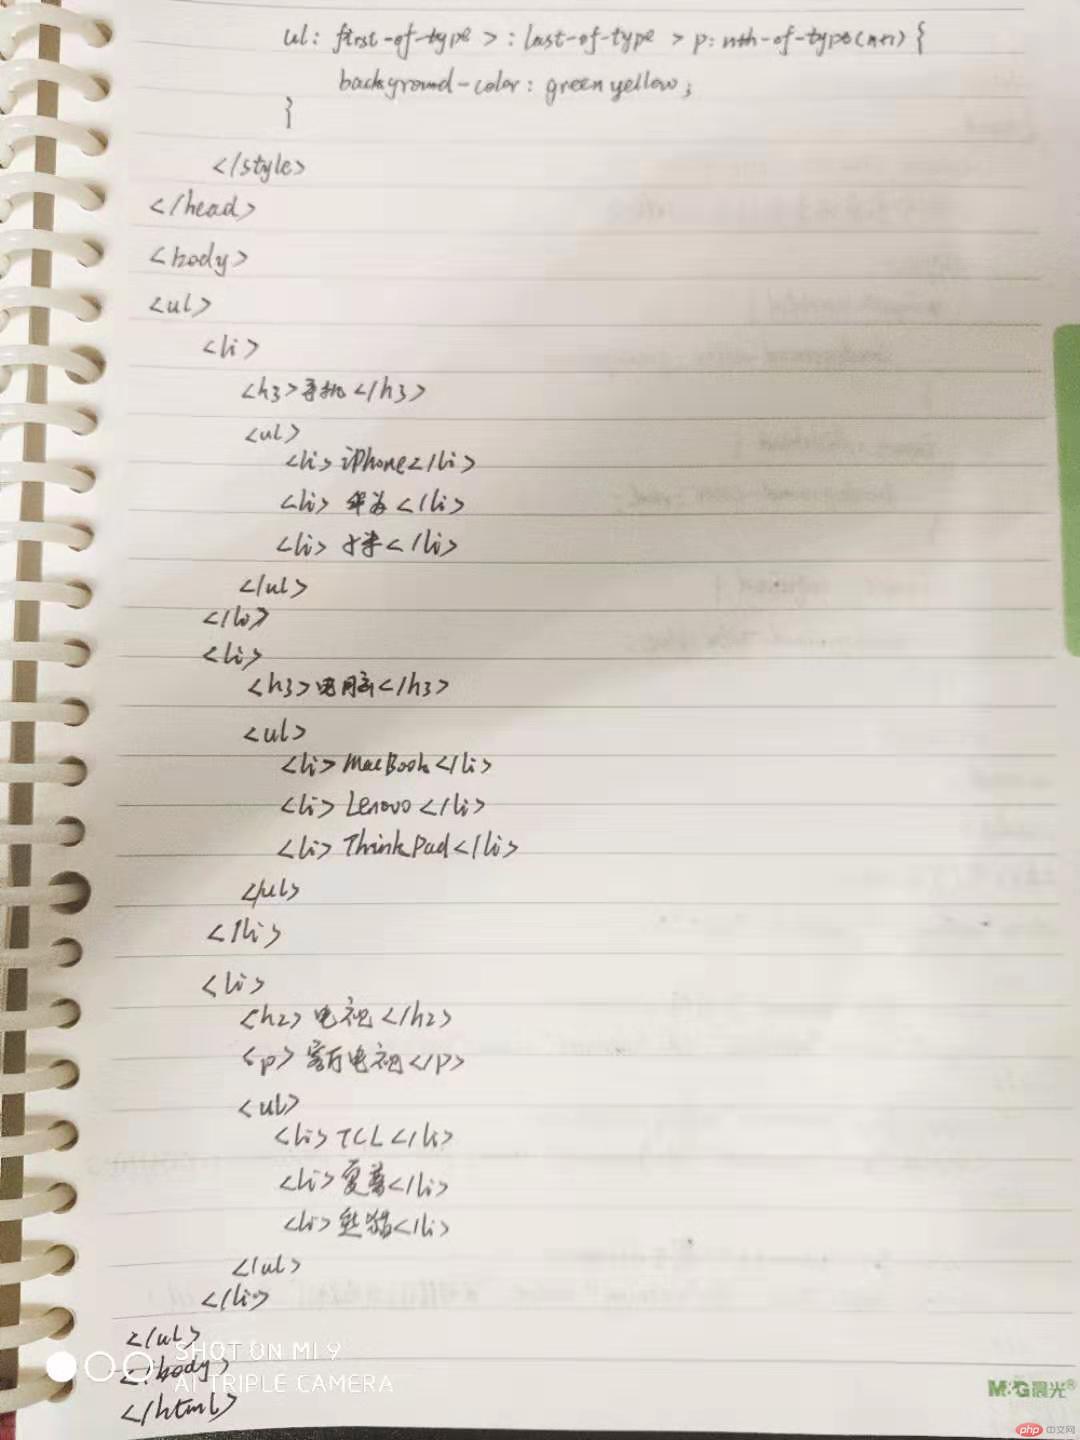 ul: first-of-type > :last-of-type > p:nth-of-type(n+1) {
background-color: greenyellow;
}
</style>
</head>
<body>
<ul>
<li>
<h3>手机</h3>
<ul>
<li>iPhone</li>
<li>华为</li>
<li>小米</li>
</ul>
</li>
<li>
<h3>电脑</h3>
<ul>
<li>MacBook</li>
<li>Lenovo</li>
<li>ThinkPad</li>
</ul>
</li>
<li>
<h2>电视</h2>
<p>客厅电视</p>
<ul>
<li>TCL</li>
<li>夏普</li>
<li>熊猫</li>
</ul>
</li>
</ul>
</body>
</html>
SHOT ON MI 9
AI TRIPLE CAMERA
M&G晨光®
php 中文网